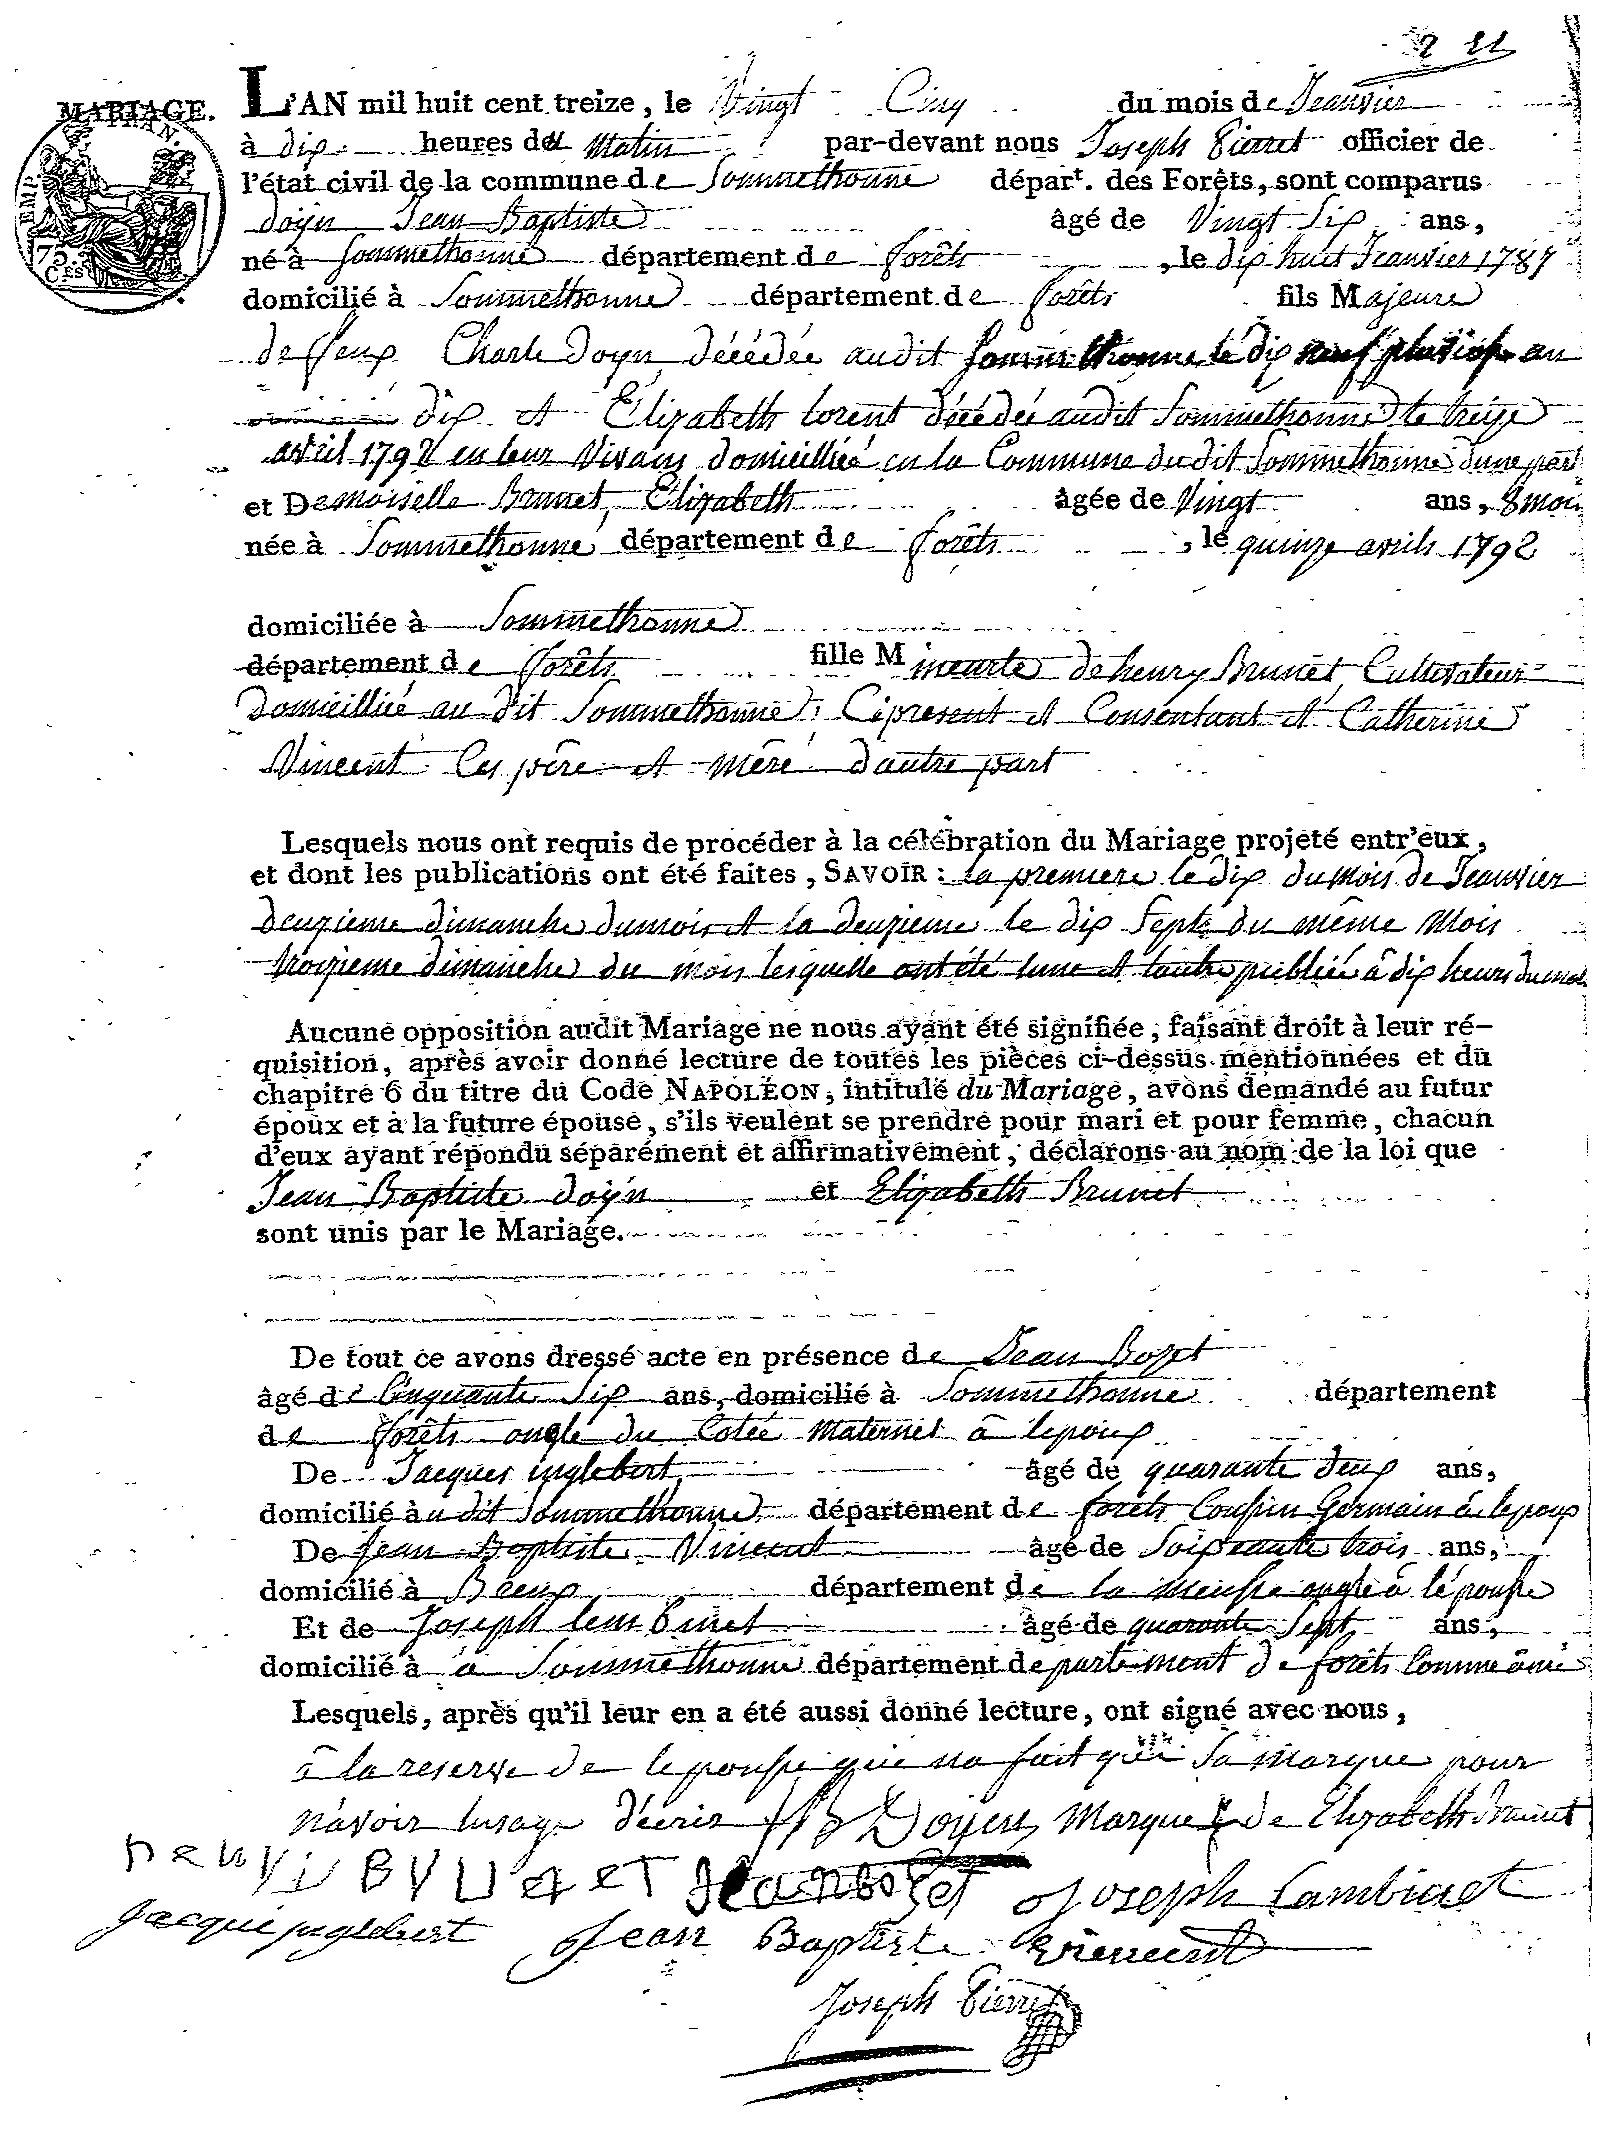 2 21
MARIAGE. L'AN mil huit cent treize, le Vingt Cinq du mois de Jeanvier
à dix heures du Matin par-devant nous Joseph Pierret officier de
l'état civil de la commune de Sommethonne départ. des Forêts, sont comparus
doyn Jean Baptiste âgé de Vingt Six ans,
né à Sommethonne département de forêts, le dix huit Jeanvier 1787
domicilié à Sommethonne département de forêts fils Majeure
de feux Charle doyn décédée audit Sommethonne le dix neuf pluviose an
dix et Elizabeth lorent décédée audit Sommethonne le treize
avril 1792 en leur Vivans domicilliée en la Commune du dit Sommethonne dune part
et Demoiselle Brunet, Elizabeth âgée de Vingt ans, 8 moi
née à Sommethonne département de forêts, le quinze avrils 1792
domiciliée à Sommethonne
département de forêts fille Mineurte de henry Brunet Cultivateur
Domicilliée au dit Sommethonne, Ci present et Consentant et Catherine
Vincent Ces père et mère d'autre part
Lesquels nous ont requis de procéder à la célébration du Mariage projeté entr'eux,
et dont les publications ont été faites, SAVOIR: la premiere le dix du mois de Jeanvier
deuzieme dimanche du mois et la deuzieme le dix Septe du même Mois
troizieme dimanche du mois lesquelle ont été lune et lautre publiée à dix heurs du mat
Aucune opposition audit Mariage ne nous ayant été signifiée, faisant droit à leur ré-
quisition, après avoir donné lecture de toutes les pièces ci-dessus mentionnées et du
chapitre 6 du titre du Code NAPOLÉON, intitulé du Mariage, avons demandé au futur
époux et à la future épouse, s'ils veulent se prendre pour mari et pour femme, chacun
d'eux ayant répondu séparément et affirmativement, déclarons au nom de la loi que
Jean Baptiste doyn et Elizabeth Brunet
sont unis par le Mariage.
De tout ce avons dressé acte en présence de Jean Bozet
âgé de Cinquante Six ans, domicilié à Sommethonne département
de forêts ongle du Cotée Maternel à lepoux
De Jacques inglebert âgé de quarante deux ans,
domicilié à u dit Sommethonne département de forêts Coussin Germain à lepoux
De Jean Baptiste Vincent âgé de Soixeante trois ans,
domicilié à Breux département de la meusse ongle à lépousse
Et de Joseph lembinet âgé de quarante Sept ans,
domicilié à a Sommethonne département departement de forêts Comme amie
Lesquels, après qu'il leur en a été aussi donné lecture, ont signé avec nous,
à la reserve de lepousse qui na fait que sa marque pour
n'avoir lusage décrir JB Doyen Marque de Elizabeth Brunet
henri Brunet Jean bozet Joseph Lambinet
Jacque inglebert Jean Baptiste Vincent
Joseph Pierret
EMP. FRAN.
75
C.ES